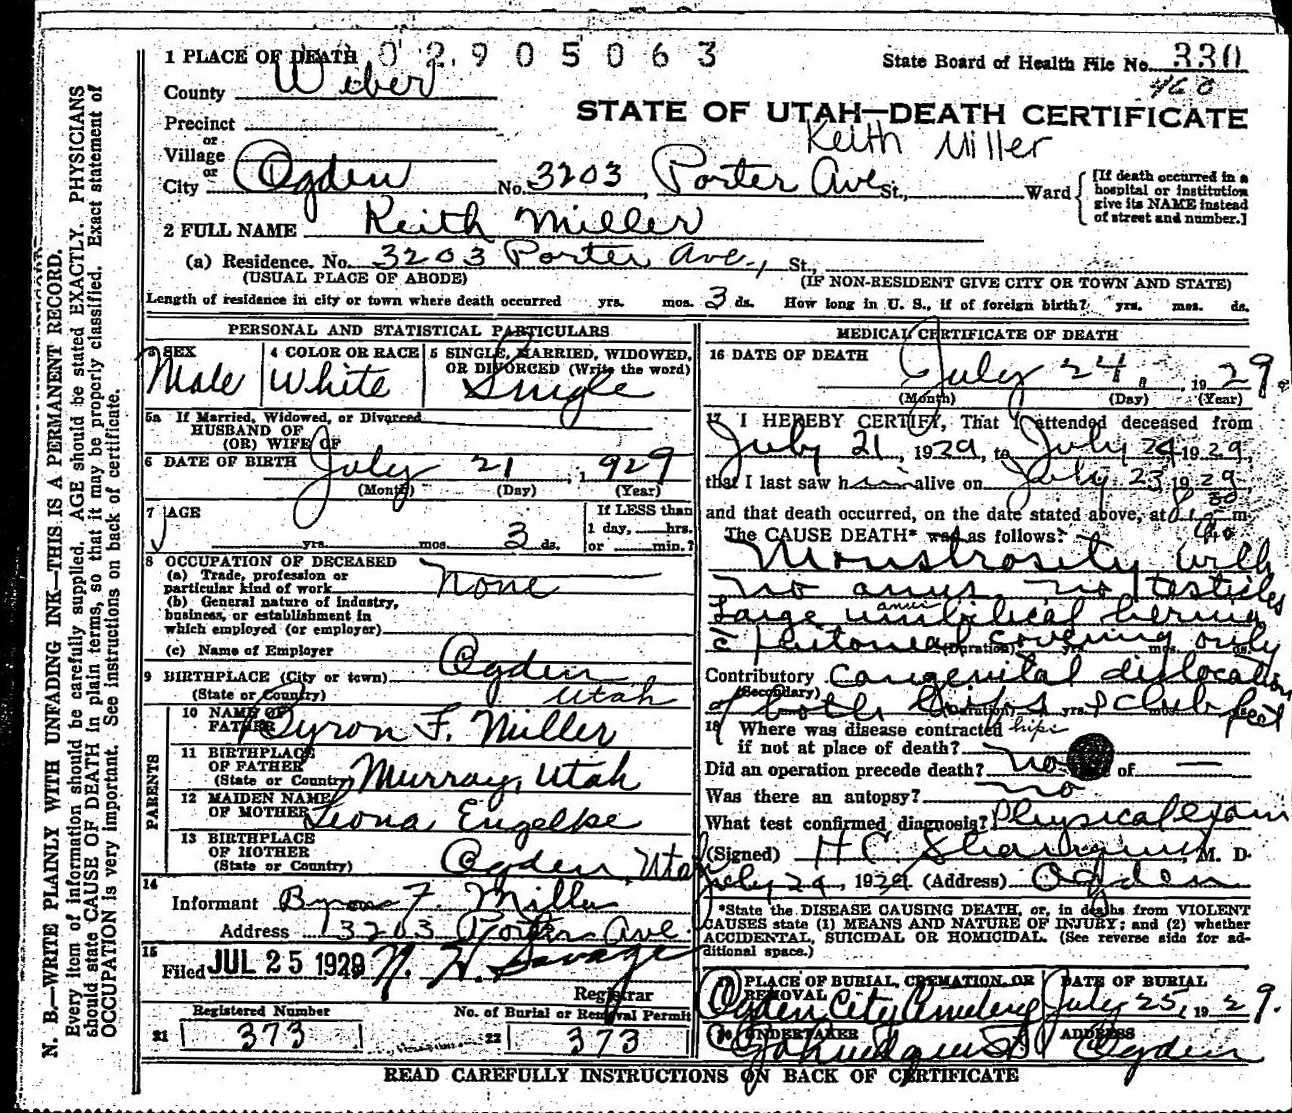 1 PLACE OF DEATH 02905063
State Board of Health File No. 330
460
County Weber
STATE OF UTAH—DEATH CERTIFICATE
Precinct
Keith Miller
or
Village
or
City Ogden No. 3203 Porter Ave St., Ward
[If death occurred in a hospital or institution give its NAME instead of street and number.]
2 FULL NAME Keith Miller
(a) Residence. No. 3203 Porter Ave., St.,
(USUAL PLACE OF ABODE) (IF NON-RESIDENT GIVE CITY OR TOWN AND STATE)
Length of residence in city or town where death occurred yrs. mos. 3 ds. How long in U. S., if of foreign birth? yrs. mos. ds.
PERSONAL AND STATISTICAL PARTICULARS
3 SEX Male
4 COLOR OR RACE White
5 SINGLE, MARRIED, WIDOWED, OR DIVORCED (Write the word) Single
5a If Married, Widowed, or Divorced
HUSBAND OF
(OR) WIFE OF
6 DATE OF BIRTH July 21, 1929
(Month) (Day) (Year)
7 AGE
yrs. mos. 3 ds.
If LESS than
1 day, hrs.
or min.?
8 OCCUPATION OF DECEASED
(a) Trade, profession or
particular kind of work None
(b) General nature of industry,
business, or establishment in
which employed (or employer)
(c) Name of Employer
9 BIRTHPLACE (City or town) Ogden
(State or Country) Utah
PARENTS
10 NAME OF
FATHER Byron F. Miller
11 BIRTHPLACE
OF FATHER
(State or Country) Murray, Utah
12 MAIDEN NAME
OF MOTHER Leona Engelke
13 BIRTHPLACE
OF MOTHER
(State or Country) Ogden, Utah
14
Informant Byron F. Miller
Address 3203 Porter Ave.
15
Filed JUL 25 1929 N. H. Savage
Registrar
Registered Number No. of Burial or Removal Permit
21 373 22 373
MEDICAL CERTIFICATE OF DEATH
16 DATE OF DEATH
July 24, 1929.
(Month) (Day) (Year)
17 I HEREBY CERTIFY, That I attended deceased from
July 21, 1929, to July 24 1929,
that I last saw him alive on July 23 1929,
and that death occurred, on the date stated above, at m
The CAUSE DEATH* was as follows?
Monstrosity with
no anus, no testicles
Large umbilical hernia
c/ peritoneal covering only
(Duration) yrs. mos. ds.
Contributory congenital dislocation
(Secondary)
of both hips & club feet
(Duration) yrs.
18 Where was disease contracted hips
if not at place of death?
Did an operation precede death? no of —
Was there an autopsy? no
What test confirmed diagnosis? Physical exam
(Signed) H C M. D.
July 24, 1929 (Address) Ogden
*State the DISEASE CAUSING DEATH, or, in deaths from VIOLENT
CAUSES state (1) MEANS AND NATURE OF INJURY; and (2) whether
ACCIDENTAL, SUICIDAL OR HOMICIDAL. (See reverse side for additional space.)
19 PLACE OF BURIAL, CREMATION, OR
REMOVAL
Ogden City Cemetery
DATE OF BURIAL
July 25, 1929.
20 UNDERTAKER
ADDRESS
Ogden
READ CAREFULLY INSTRUCTIONS ON BACK OF CERTIFICATE
N. B.—WRITE PLAINLY WITH UNFADING INK—THIS IS A PERMANENT RECORD.
Every item of information should be carefully supplied. AGE should be stated EXACTLY. PHYSICIANS
should state CAUSE OF DEATH in plain terms, so that it may be properly classified. Exact statement of
OCCUPATION is very important. See instructions on back of certificate.